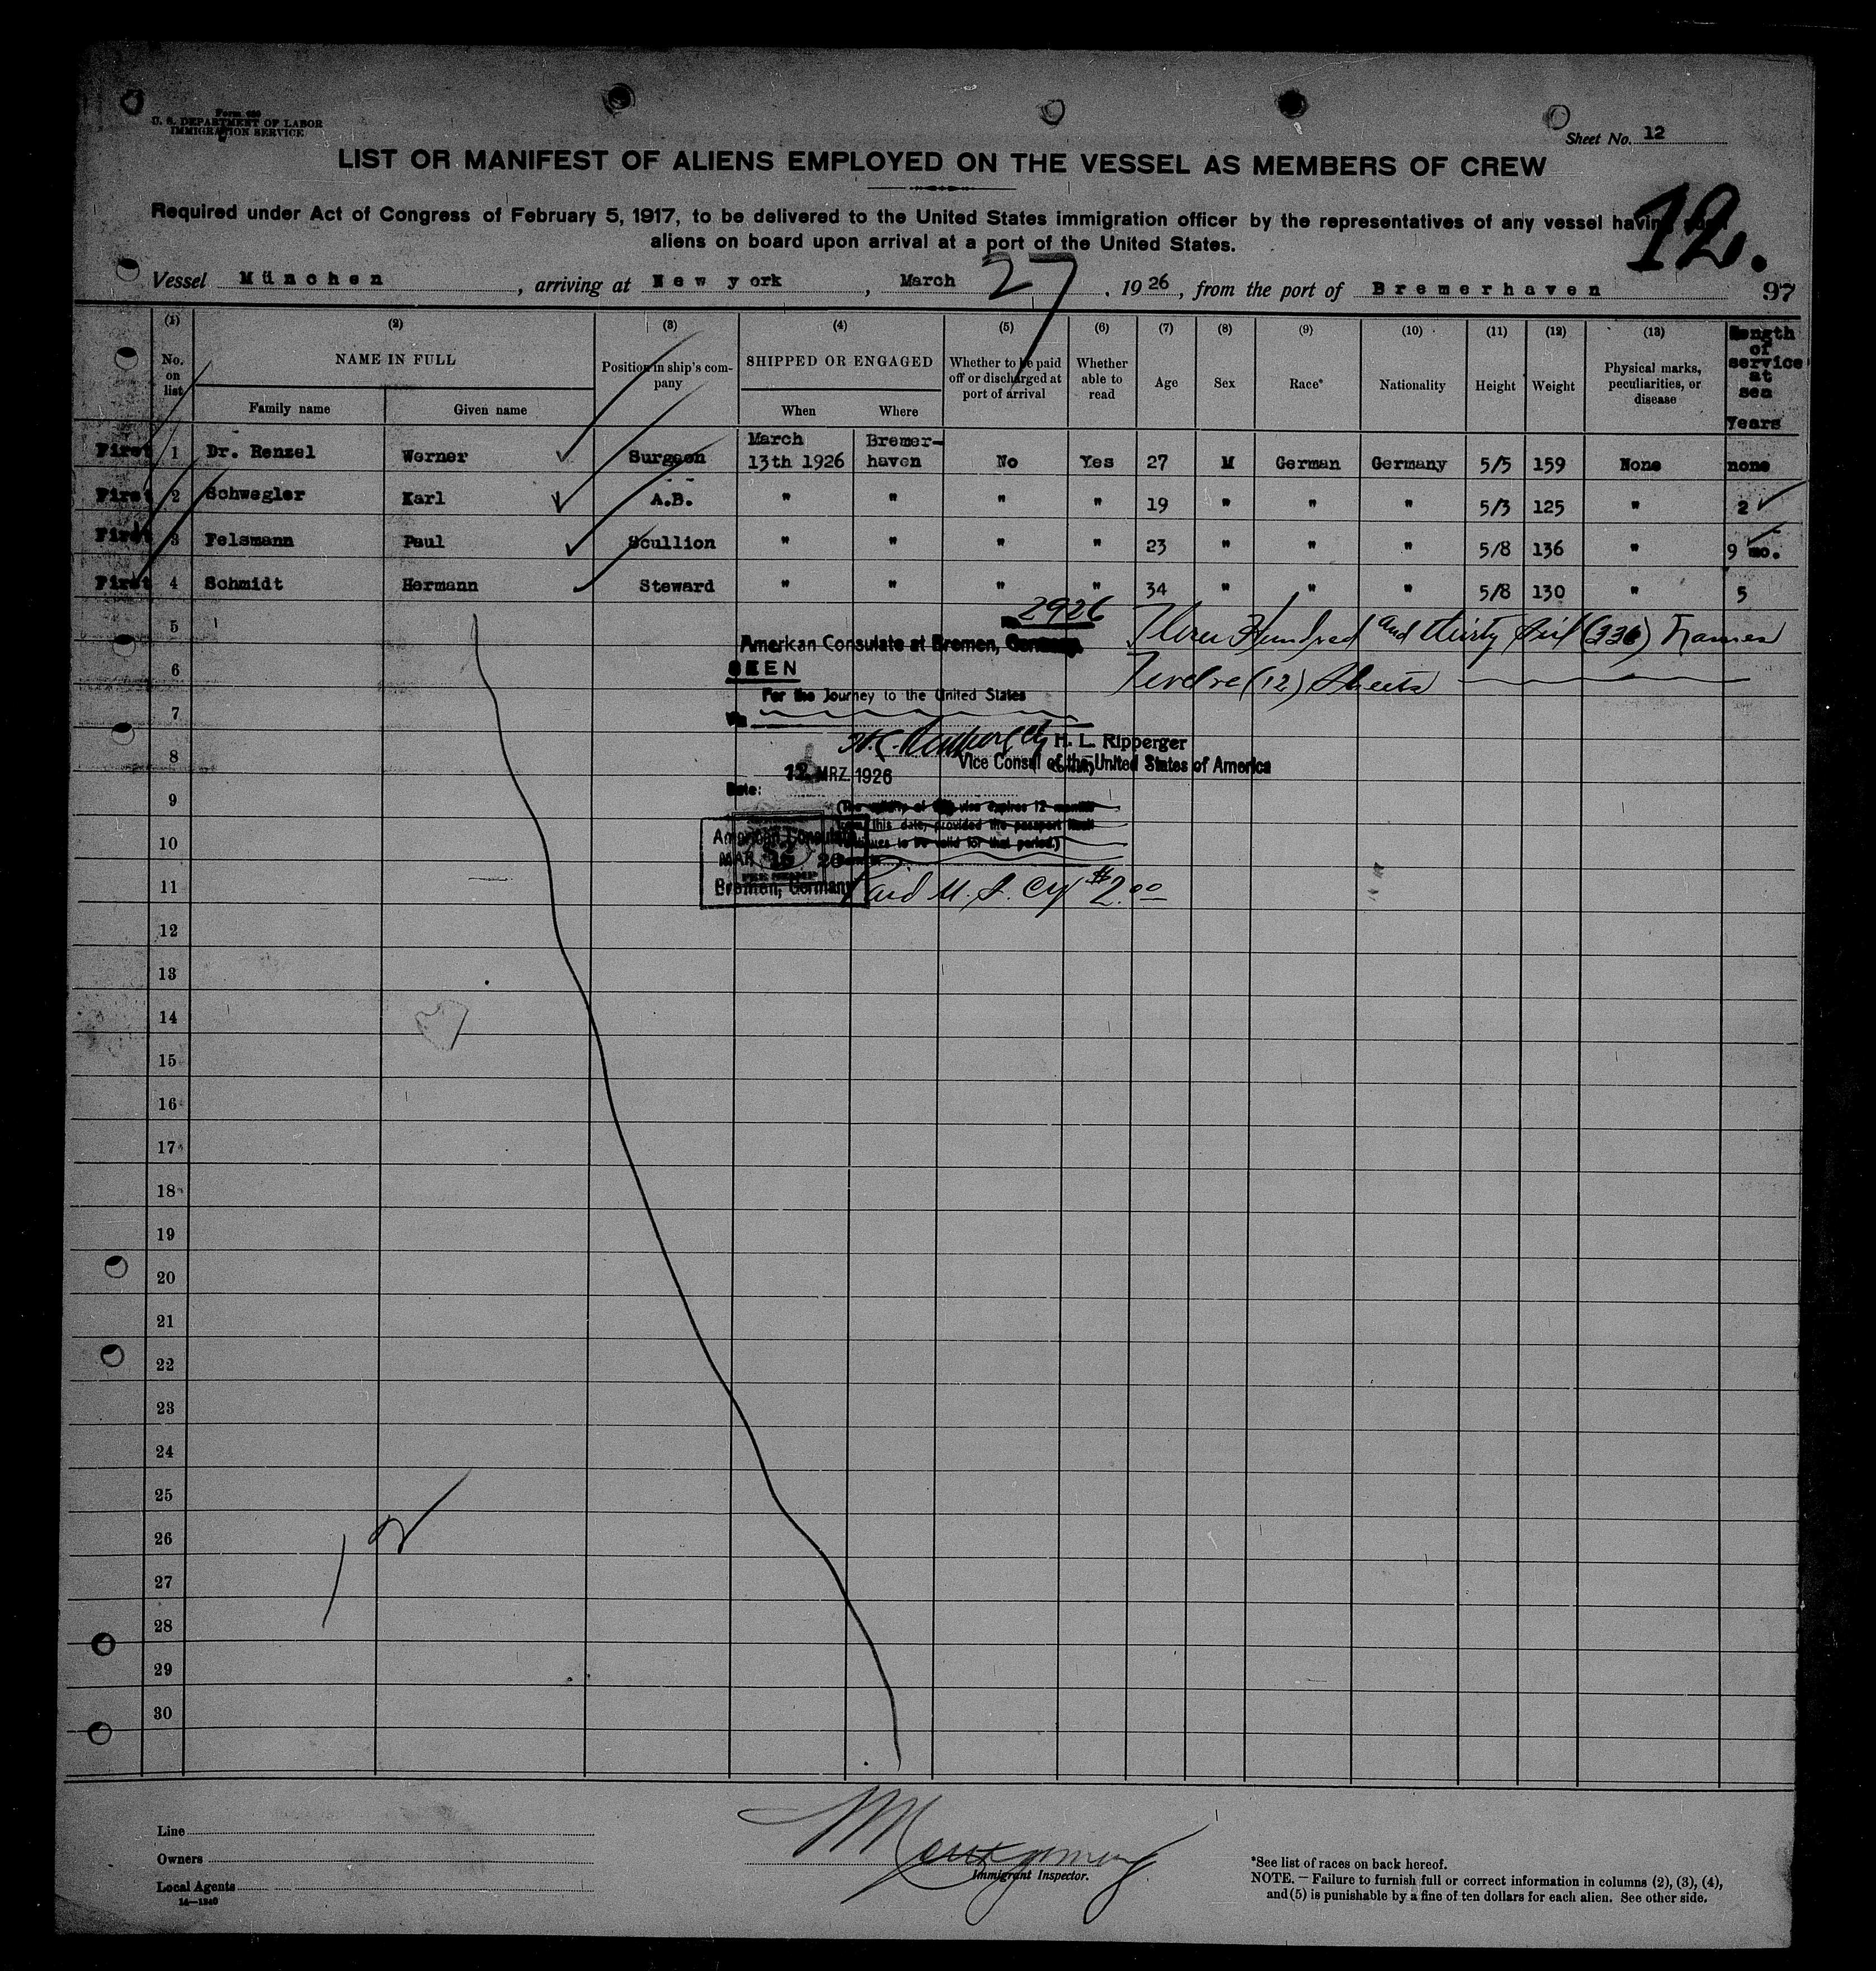 Form 680
U. S. DEPARTMENT OF LABOR
IMMIGRATION SERVICE
Sheet No. 12
LIST OR MANIFEST OF ALIENS EMPLOYED ON THE VESSEL AS MEMBERS OF CREW
Required under Act of Congress of February 5, 1917, to be delivered to the United States immigration officer by the representatives of any vessel having such
aliens on board upon arrival at a port of the United States.
12.
Vessel München, arriving at New york, March 27, 1926, from the port of Bremerhaven 97
(1) (2) (3) (4) (5) (6) (7) (8) (9) (10) (11) (12) (13)
No. on list NAME IN FULL Position in ship's company SHIPPED OR ENGAGED Whether to be paid off or discharged at port of arrival Whether able to read Age Sex Race* Nationality Height Weight Physical marks, peculiarities, or disease Length of service at sea Years
Family name Given name When Where
First 1 Dr. Renzel Werner Surgeon March 13th 1926 Bremer-haven No Yes 27 M German Germany 5/5 159 None none
First 2 Schwegler Karl A.B. " " " " 19 " " " 5/3 125 " 2
First 3 Felsmann Paul Scullion " " " " 23 " " " 5/8 136 " 9 mo.
First 4 Schmidt Hermann Steward " " " " 34 " " " 5/8 130 " 5
5
6
7
8
9
10
11
12
13
14
15
16
17
18
19
20
21
22
23
24
25
26
27
28
29
30
No 2926
American Consulate at Bremen, Germany.
SEEN
For the Journey to the United States
Via
Three Hundred and thirty six (336) Names
Twelve (12) Sheets
H. L. Ripperger
Vice Consul of the United States of America
Date: 12. MRZ. 1926
(The validity of this visa expires 12 months
from this date, provided the passport
continues to be valid for that period.)
American Consulate
MAR 26
FEE STAMP
Bremen, Germany
Paid U. S. Cy $2.00
Line
Owners
Local Agents
14—1240
Montgomery
Immigrant Inspector.
*See list of races on back hereof.
NOTE.—Failure to furnish full or correct information in columns (2), (3), (4),
and (5) is punishable by a fine of ten dollars for each alien. See other side.